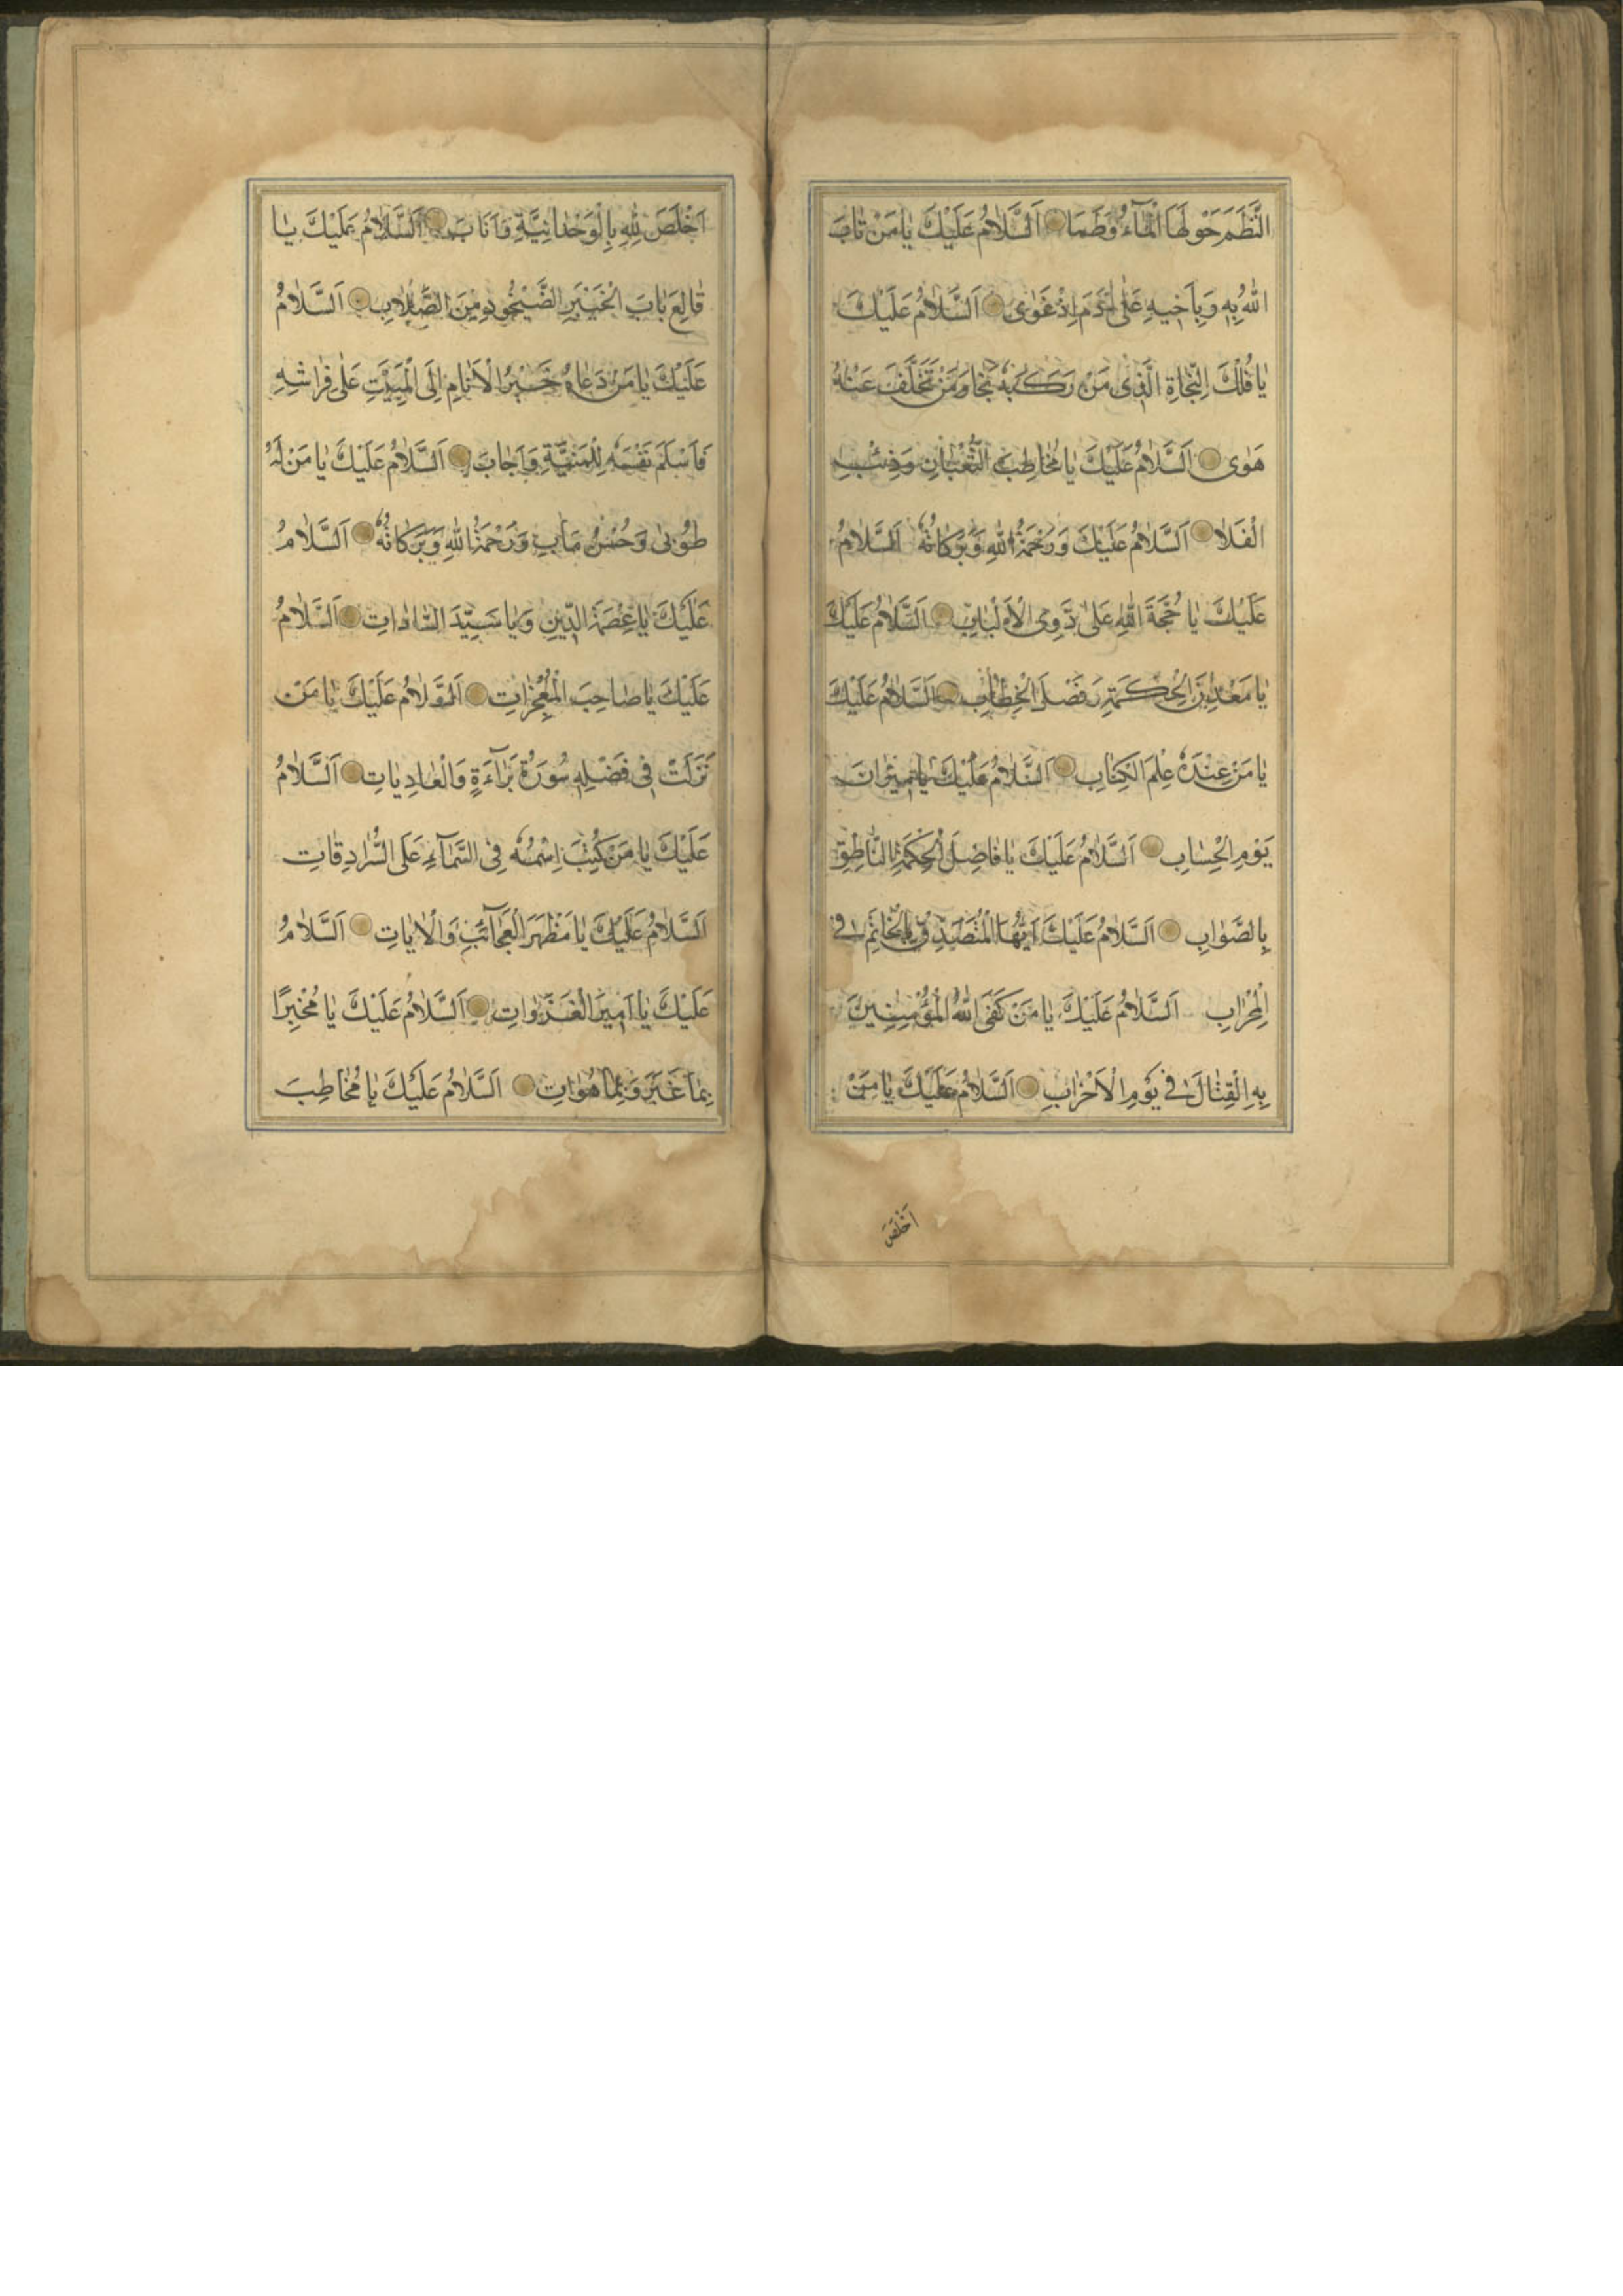 النَّظَمَ حَوْلَهَا الْمَآءُ وَطَمَا اَلسَّلَامُ عَلَيْكَ يَا مَنْ تَابَ
اللهُ بِهِ وَبِاَخِيهِ عَلَى اٰدَمَ اِذْ غَوٰى اَلسَّلَامُ عَلَيْكَ
يَا فُلْكَ النَّجَاةِ الَّذِى مَنْ رَكَبَهُ نَجَا وَمَنْ تَخَلَّفَ عَنْهُ
هَوٰى اَلسَّلَامُ عَلَيْكَ يَا مُخَاطِبَ الثُّعْبَانِ وَذِئْبِ
الْفَلَا اَلسَّلَامُ عَلَيْكَ وَرَحْمَةُ اللهِ وَبَرَكَاتُهُ اَلسَّلَامُ
عَلَيْكَ يَا حُجَّةَ اللهِ عَلَى ذَوِى الْاَلْبَابِ اَلسَّلَامُ عَلَيْكَ
يَا مَعْدِنَ الْحِكْمَةِ وَفَصْلَ الْخِطَابِ اَلسَّلَامُ عَلَيْكَ
يَا مَنْ عِنْدَهُ عِلْمُ الْكِتَابِ اَلسَّلَامُ عَلَيْكَ يَا مِيزَانَ
يَوْمِ الْحِسَابِ اَلسَّلَامُ عَلَيْكَ يَا فَاصِلَ الْحِكْمَةِ النَّاطِقِ
بِالصَّوَابِ اَلسَّلَامُ عَلَيْكَ اَيُّهَا الْمُتَصَدِّقُ بِالْخَاتَمِ فِى
الْمِحْرَابِ اَلسَّلَامُ عَلَيْكَ يَا مَنْ كَفَى اللهُ الْمُؤْمِنِينَ
بِهِ الْقِتَالَ فِى يَوْمِ الْاَحْزَابِ اَلسَّلَامُ عَلَيْكَ يَا مَنْ
اَخْلَصَ
اَخْلَصَ لِلّٰهِ بِالْوَحْدَانِيَّةِ فَاَنَابَ اَلسَّلَامُ عَلَيْكَ يَا
قَالِعَ بَابَ الْخَيْبَرِ الصَّيْخُودِ مِنَ الصِّلَابِ اَلسَّلَامُ
عَلَيْكَ يَا مَنْ دَعَاهُ خَيْرُ الْاَنَامِ اِلَى الْمَبِيتِ عَلٰى فِرَاشِهِ
فَاَسْلَمَ نَفْسَهُ لِلْمَنِيَّةِ وَاَجَابَ اَلسَّلَامُ عَلَيْكَ يَا مَنْ لَهُ
طُوبٰى وَحُسْنُ مَاٰبٍ وَرَحْمَةُ اللهِ وَبَرَكَاتُهُ اَلسَّلَامُ
عَلَيْكَ يَا عِصْمَةَ الدِّينِ وَيَا سَيِّدَ السَّادَاتِ اَلسَّلَامُ
عَلَيْكَ يَا صَاحِبَ الْمُعْجِزَاتِ اَلسَّلَامُ عَلَيْكَ يَا مَنْ
نَزَلَتْ فِى فَضْلِهِ سُورَةُ بَرَآءَةٍ وَالْعَادِيَاتِ اَلسَّلَامُ
عَلَيْكَ يَا مَنْ كُتِبَ اِسْمُهُ فِى السَّمَآءِ عَلَى السُّرَادِقَاتِ
اَلسَّلَامُ عَلَيْكَ يَا مَظْهَرَ الْعَجَآئِبِ وَالْاٰيَاتِ اَلسَّلَامُ
عَلَيْكَ يَا اَمِيرَ الْغَزَوَاتِ اَلسَّلَامُ عَلَيْكَ يَا مُخْبِرًا
بِمَا غَبَرَ وَبِمَا هُوَ اٰتٍ اَلسَّلَامُ عَلَيْكَ يَا مُخَاطِبَ